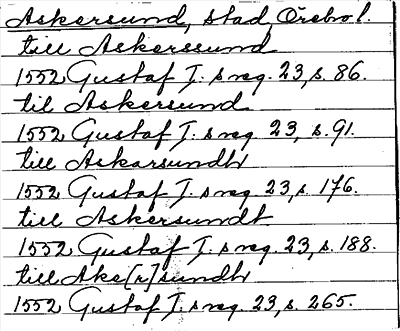 Askersund, stad Örebro l.
till Askerssund
1552 Gustaf I:s reg. 23, s. 86.
til Askersund
1552 Gustaf I:s reg. 23, s. 91.
till Askarsundh
1552 Gustaf I:s reg. 23, s. 176.
till Askersundt
1552 Gustaf I:s reg. 23, s. 188.
till Ake[r]sundh
1552 Gustaf I:s reg. 23, s. 265.